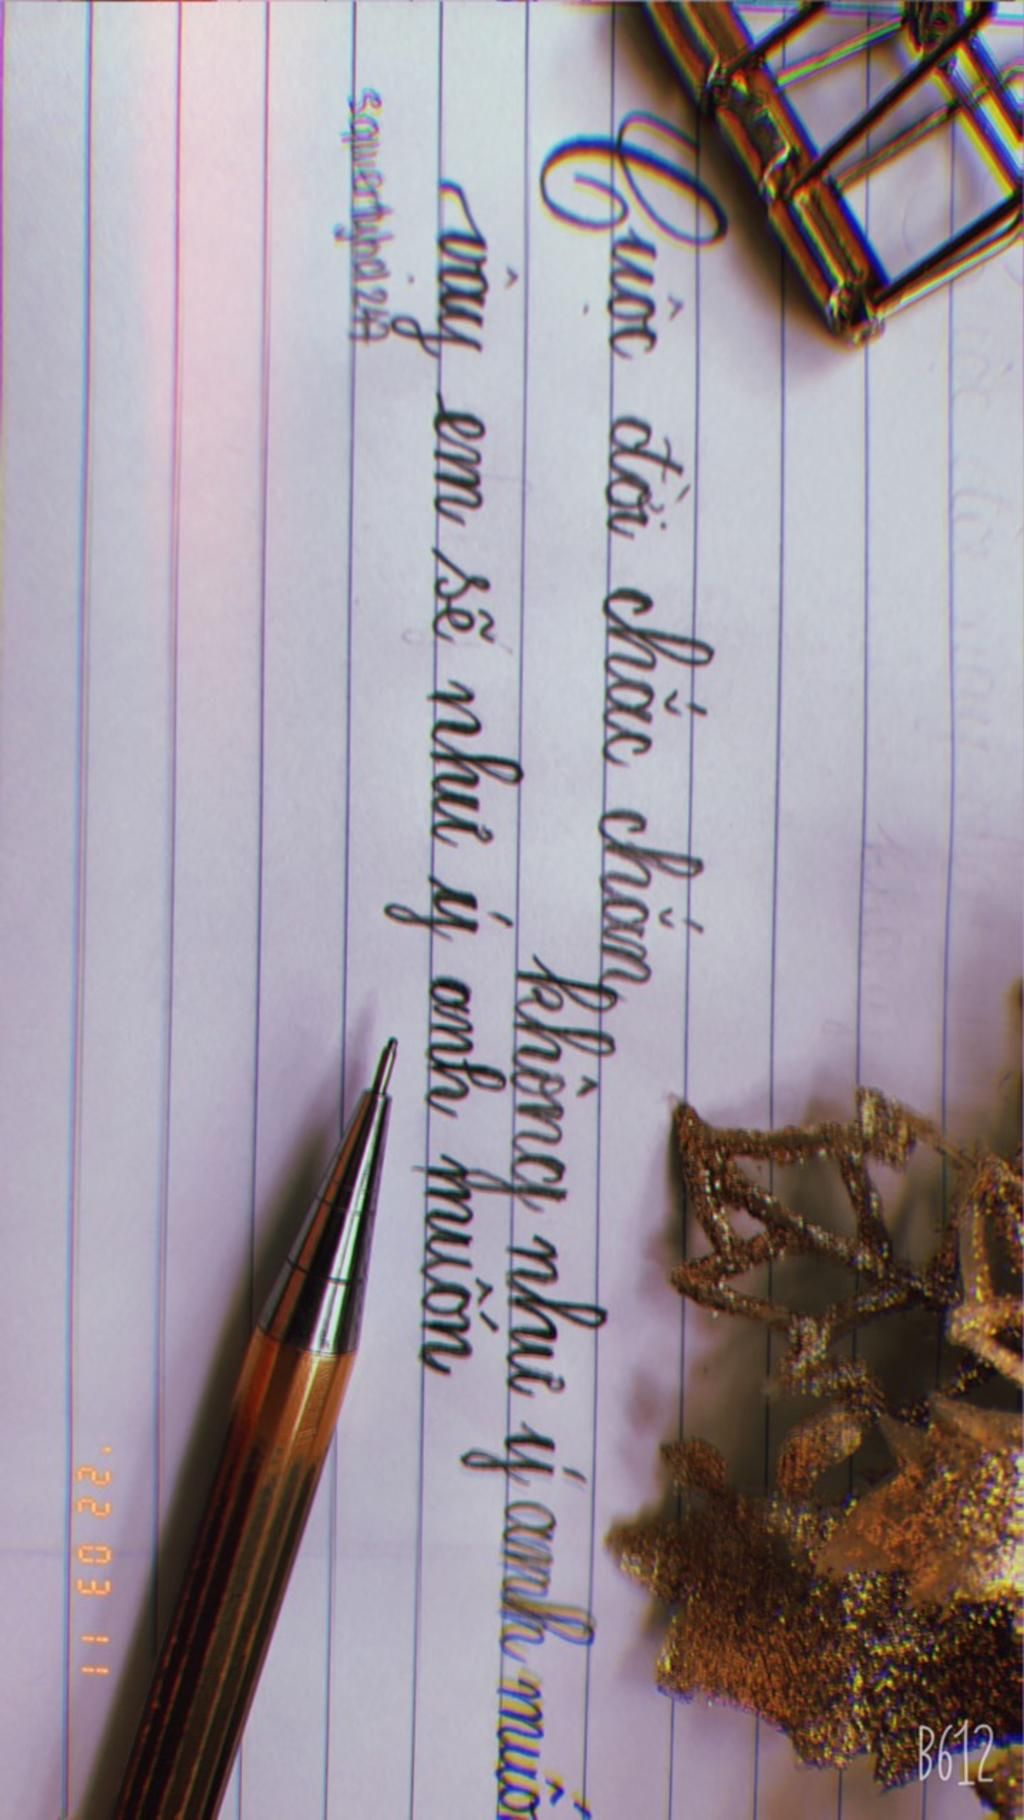 Cuộc đời chắc chắn,
không như ý anh muố
vậy em sẽ như ý anh muốn
squertyhd247
'22 03 11
B612